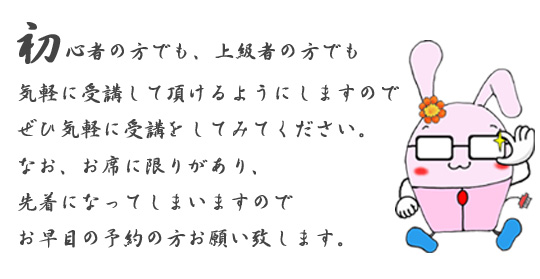 初心者の方でも、上級者の方でも
気軽に受講して頂けるようにしますので
ぜひ気軽に受講をしてみてください。
なお、お席に限りがあり、
先着になってしまいますので
お早目の予約の方お願い致します。